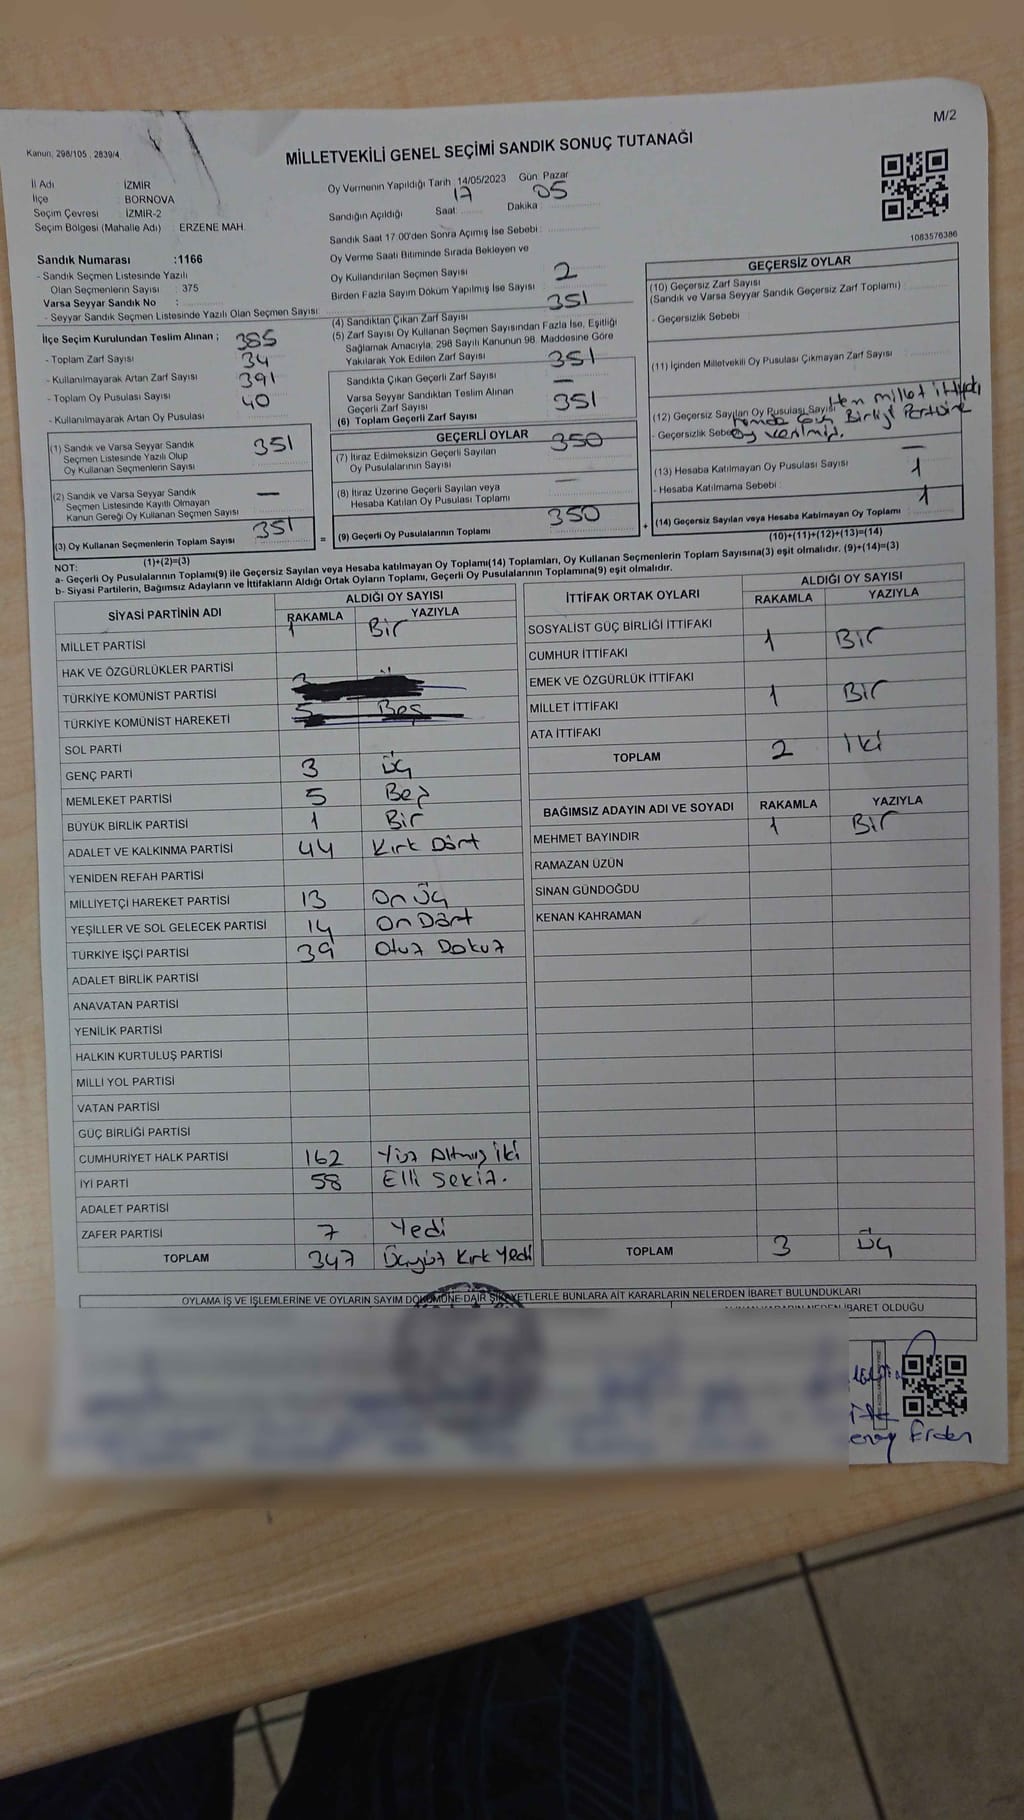 M/2
Kanun: 298/105 , 2839/4
MİLLETVEKİLİ GENEL SEÇİMİ SANDIK SONUÇ TUTANAĞI
İl Adı İZMİR
İlçe BORNOVA
Seçim Çevresi : İZMİR-2
Seçim Bölgesi (Mahalle Adı) : ERZENE MAH.
Sandık Numarası :1166
- Sandık Seçmen Listesinde Yazılı
Olan Seçmenlerin Sayısı : 375
Varsa Seyyar Sandık No :
- Seyyar Sandık Seçmen Listesinde Yazılı Olan Seçmen Sayısı:
Oy Vermenin Yapıldığı Tarih :14/05/2023 Gün: Pazar
Sandığın Açıldığı Saat: 17 Dakika : 05
Sandık Saat 17:00'den Sonra Açımış İse Sebebi :
Oy Verme Saati Bitiminde Sırada Bekleyen ve
Oy Kullandırılan Seçmen Sayısı 2
Birden Fazla Sayım Döküm Yapılmış İse Sayısı :
1083576386
İlçe Seçim Kurulundan Teslim Alınan ; 385
- Toplam Zarf Sayısı 34
- Kullanılmayarak Artan Zarf Sayısı 391
- Toplam Oy Pusulası Sayısı 40
- Kullanılmayarak Artan Oy Pusulası
(1) Sandık ve Varsa Seyyar Sandık
Seçmen Listesinde Yazılı Olup
Oy Kullanan Seçmenlerin Sayısı 351
(2) Sandık ve Varsa Seyyar Sandık
Seçmen Listesinde Kayıtlı Olmayan
Kanun Gereği Oy Kullanan Seçmen Sayısı —
(3) Oy Kullanan Seçmenlerin Toplam Sayısı 351
(1)+(2)=(3)
(4) Sandıktan Çıkan Zarf Sayısı 351
(5) Zarf Sayısı Oy Kullanan Seçmen Sayısından Fazla İse, Eşitliği
Sağlamak Amacıyla, 298 Sayılı Kanunun 98. Maddesine Göre
Yakılarak Yok Edilen Zarf Sayısı
Sandıkta Çıkan Geçerli Zarf Sayısı 351
Varsa Seyyar Sandıktan Teslim Alınan
Geçerli Zarf Sayısı —
(6) Toplam Geçerli Zarf Sayısı 351
GEÇERLİ OYLAR
(7) İtiraz Edilmeksizin Geçerli Sayılan
Oy Pusulalarının Sayısı 350
(8) İtiraz Üzerine Geçerli Sayılan veya
Hesaba Katılan Oy Pusulası Toplamı —
= (9) Geçerli Oy Pusulalarının Toplamı 350 +
GEÇERSİZ OYLAR
(10) Geçersiz Zarf Sayısı
(Sandık ve Varsa Seyyar Sandık Geçersiz Zarf Toplamı) :
- Geçersizlik Sebebi :
(11) İçinden Milletvekili Oy Pusulası Çıkmayan Zarf Sayısı
(12) Geçersiz Sayılan Oy Pusulası Sayısı Hem millet ittifakı
- Geçersizlik Sebebi hemde Güç Birliği Partisine
oy verilmiş.
(13) Hesaba Katılmayan Oy Pusulası Sayısı —
- Hesaba Katılmama Sebebi : 1
(14) Geçersiz Sayılan veya Hesaba Katılmayan Oy Toplamı 1
(10)+(11)+(12)+(13)=(14)
NOT:
a- Geçerli Oy Pusulalarının Toplamı(9) ile Geçersiz Sayılan veya Hesaba katılmayan Oy Toplamı(14) Toplamları, Oy Kullanan Seçmenlerin Toplam Sayısına(3) eşit olmalıdır. (9)+(14)=(3)
b- Siyasi Partilerin, Bağımsız Adayların ve İttifakların Aldığı Ortak Oyların Toplamı, Geçerli Oy Pusulalarının Toplamına(9) eşit olmalıdır.
SİYASİ PARTİNİN ADI ALDIĞI OY SAYISI
RAKAMLA YAZIYLA
MİLLET PARTİSİ 1 Bir
HAK VE ÖZGÜRLÜKLER PARTİSİ
TÜRKİYE KOMÜNİST PARTİSİ 3
TÜRKİYE KOMÜNİST HAREKETİ 5 Beş
SOL PARTİ
GENÇ PARTİ 3 Üç
MEMLEKET PARTİSİ 5 Beş
BÜYÜK BİRLİK PARTİSİ 1 Bir
ADALET VE KALKINMA PARTİSİ 44 Kırk Dört
YENİDEN REFAH PARTİSİ
MİLLİYETÇİ HAREKET PARTİSİ 13 On Üç
YEŞİLLER VE SOL GELECEK PARTİSİ 14 On Dört
TÜRKİYE İŞÇİ PARTİSİ 39 Otuz Dokuz
ADALET BİRLİK PARTİSİ
ANAVATAN PARTİSİ
YENİLİK PARTİSİ
HALKIN KURTULUŞ PARTİSİ
MİLLİ YOL PARTİSİ
VATAN PARTİSİ
GÜÇ BİRLİĞİ PARTİSİ
CUMHURİYET HALK PARTİSİ 162 Yüz Altmış iki
İYİ PARTİ 58 Elli Sekiz.
ADALET PARTİSİ
ZAFER PARTİSİ 7 Yedi
TOPLAM 347 Üçyüz Kırk Yedi
İTTİFAK ORTAK OYLARI ALDIĞI OY SAYISI
RAKAMLA YAZIYLA
SOSYALİST GÜÇ BİRLİĞİ İTTİFAKI
CUMHUR İTTİFAKI 1 Bir
EMEK VE ÖZGÜRLÜK İTTİFAKI
MİLLET İTTİFAKI 1 Bir
ATA İTTİFAKI
TOPLAM 2 İki
BAĞIMSIZ ADAYIN ADI VE SOYADI RAKAMLA YAZIYLA
MEHMET BAYINDIR 1 Bir
RAMAZAN ÜZÜN
SİNAN GÜNDOĞDU
KENAN KAHRAMAN
TOPLAM 3 Üç
OYLAMA İŞ VE İŞLEMLERİNE VE OYLARIN SAYIM DÖKÜMÜNE DAİR ŞİKAYETLERLE BUNLARA AİT KARARLARIN NELERDEN İBARET BULUNDUKLARI
İBARET OLDUĞU
Erden